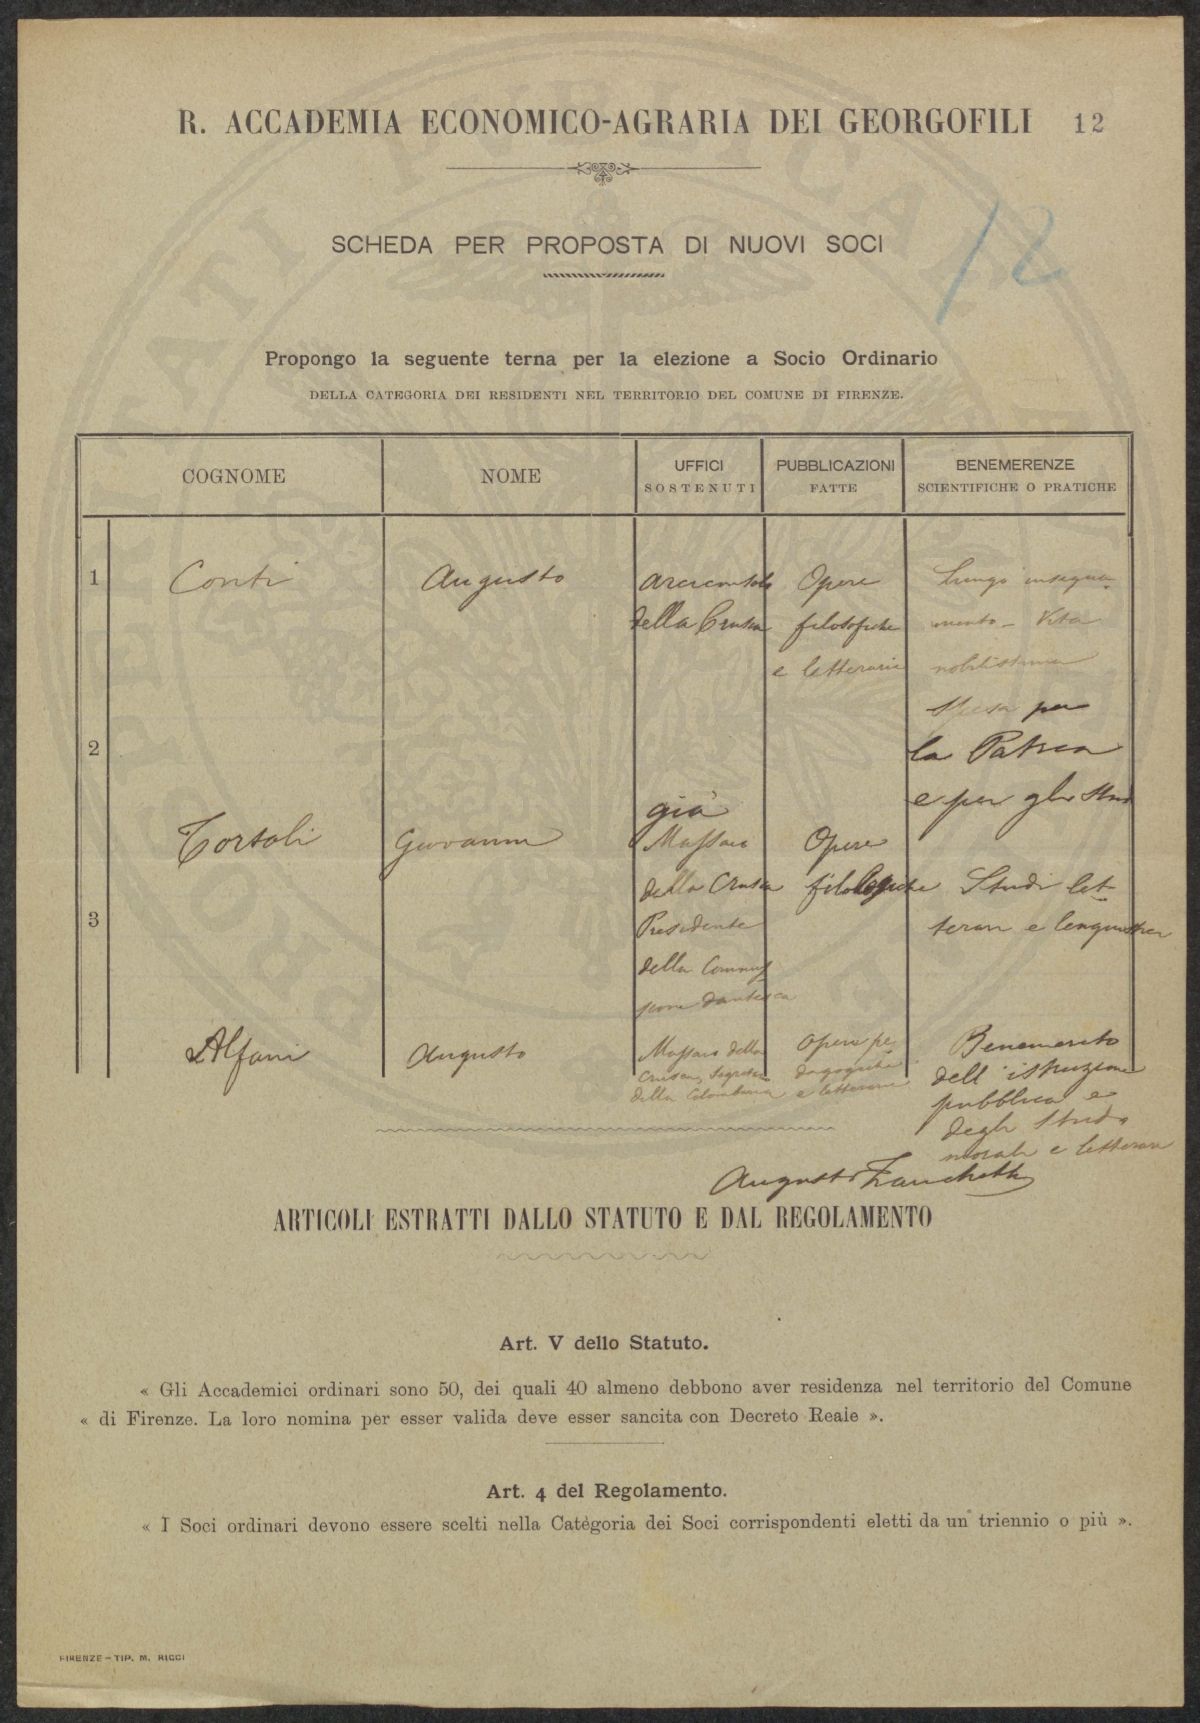 R. ACCADEMIA ECONOMICO-AGRARIA DEI GEORGOFILI 12
SCHEDA PER PROPOSTA DI NUOVI SOCI
12
Propongo la seguente terna per la elezione a Socio Ordinario
DELLA CATEGORIA DEI RESIDENTI NEL TERRITORIO DEL COMUNE DI FIRENZE.
COGNOME
NOME
UFFICI
SOSTENUTI
PUBBLICAZIONI
FATTE
BENEMERENZE
SCIENTIFICHE O PRATICHE
1
Conti
Augusto
Arciconsolo
della Crusca
Opere
filosofiche
e letterarie
Lungo insegna-
mento - Vita
nobilissima
spesa per
la Patria
e per gli studi
2
Tortoli
Giovanni
già
Massaio
della Crusca
Presidente
della Commis
sione dantesca
Opere
filologiche
Studi let-
terari e linguistici
3
Alfani
Augusto
Massaio della
Crusca, Segretario
della Colombaria
Opere pe-
dagogiche
e letterarie
Benemerito
dell'istruzione
pubblica e
degli studi
morali e letterari
Augusto Franchetti
ARTICOLI ESTRATTI DALLO STATUTO E DAL REGOLAMENTO
Art. V dello Statuto.
« Gli Accademici ordinari sono 50, dei quali 40 almeno debbono aver residenza nel territorio del Comune
« di Firenze. La loro nomina per esser valida deve esser sancita con Decreto Reale ».
Art. 4 del Regolamento.
« I Soci ordinari devono essere scelti nella Categoria dei Soci corrispondenti eletti da un triennio o più ».
FIRENZE - TIP. M. RICCI